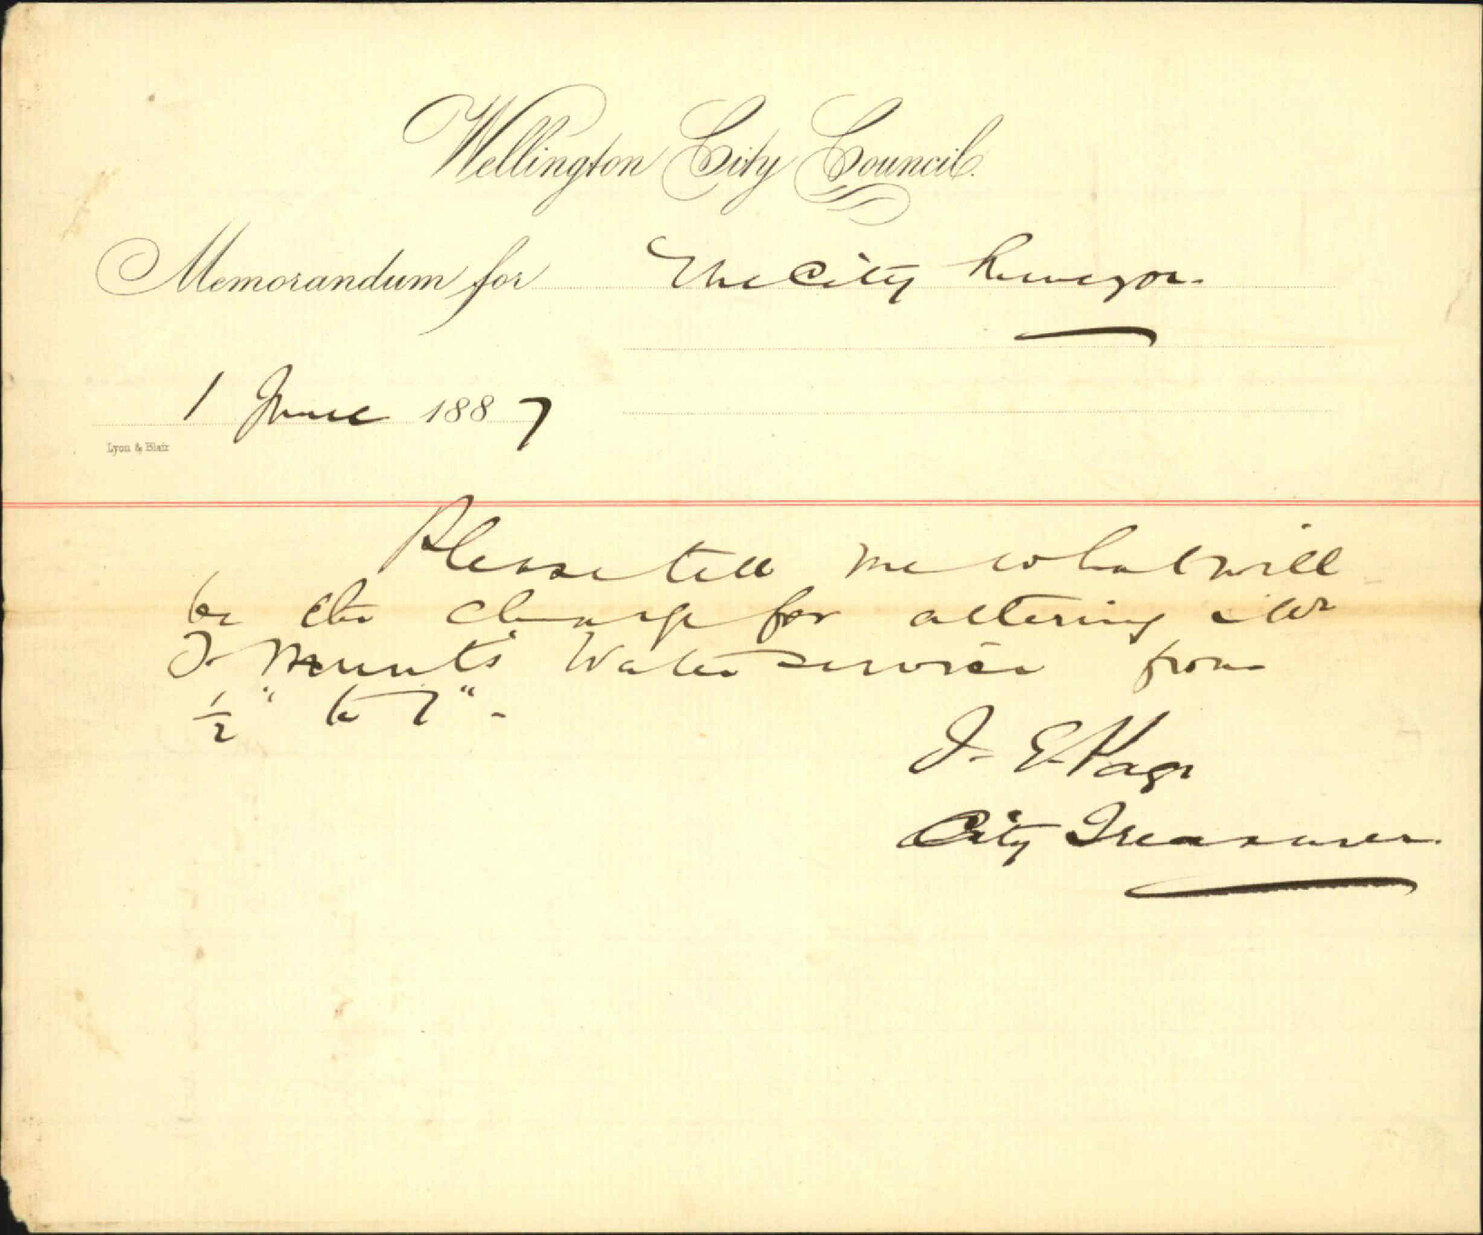 Wellington City Council.
Memorandum for The City Surveyor.
1 June 1887
Lyon & Blair
Please tell me what will
be the charge for altering Mr
J. Munt's Water service from
1/2" to 1".
J. E. Page
City Treasurer.